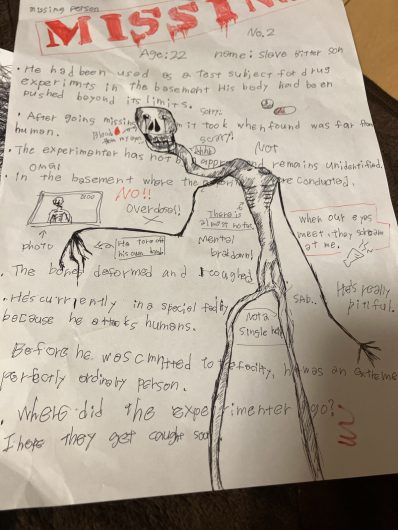 missing person
MISSIN
No.2
Age:22 name: slave bitter son
• He had been used as a test subject for drug
experimnts in the basement His body had been
pushed beyond its limits.
sorry..
• After going missing it took when found was far from
human.
Blood
scary!
• The experimenter has not been and remains unidentified.
NOT
OMG!
• In the basement where the were conducted,
NO!!
Overdose!!
There is
almost
photo
He tore off
his own
Mental
breakdown!
when our eyes
meet, they scream
at me.
• The bones deformed and
• He's currently in a special
because he attacks humans.
SAD..
He's really
pitiful.
Not a
single
Before he was cmnitted to facility, he was an extreme
perfectly ordinary person.
• Where did the experimenter go?
I hope they get caught soon